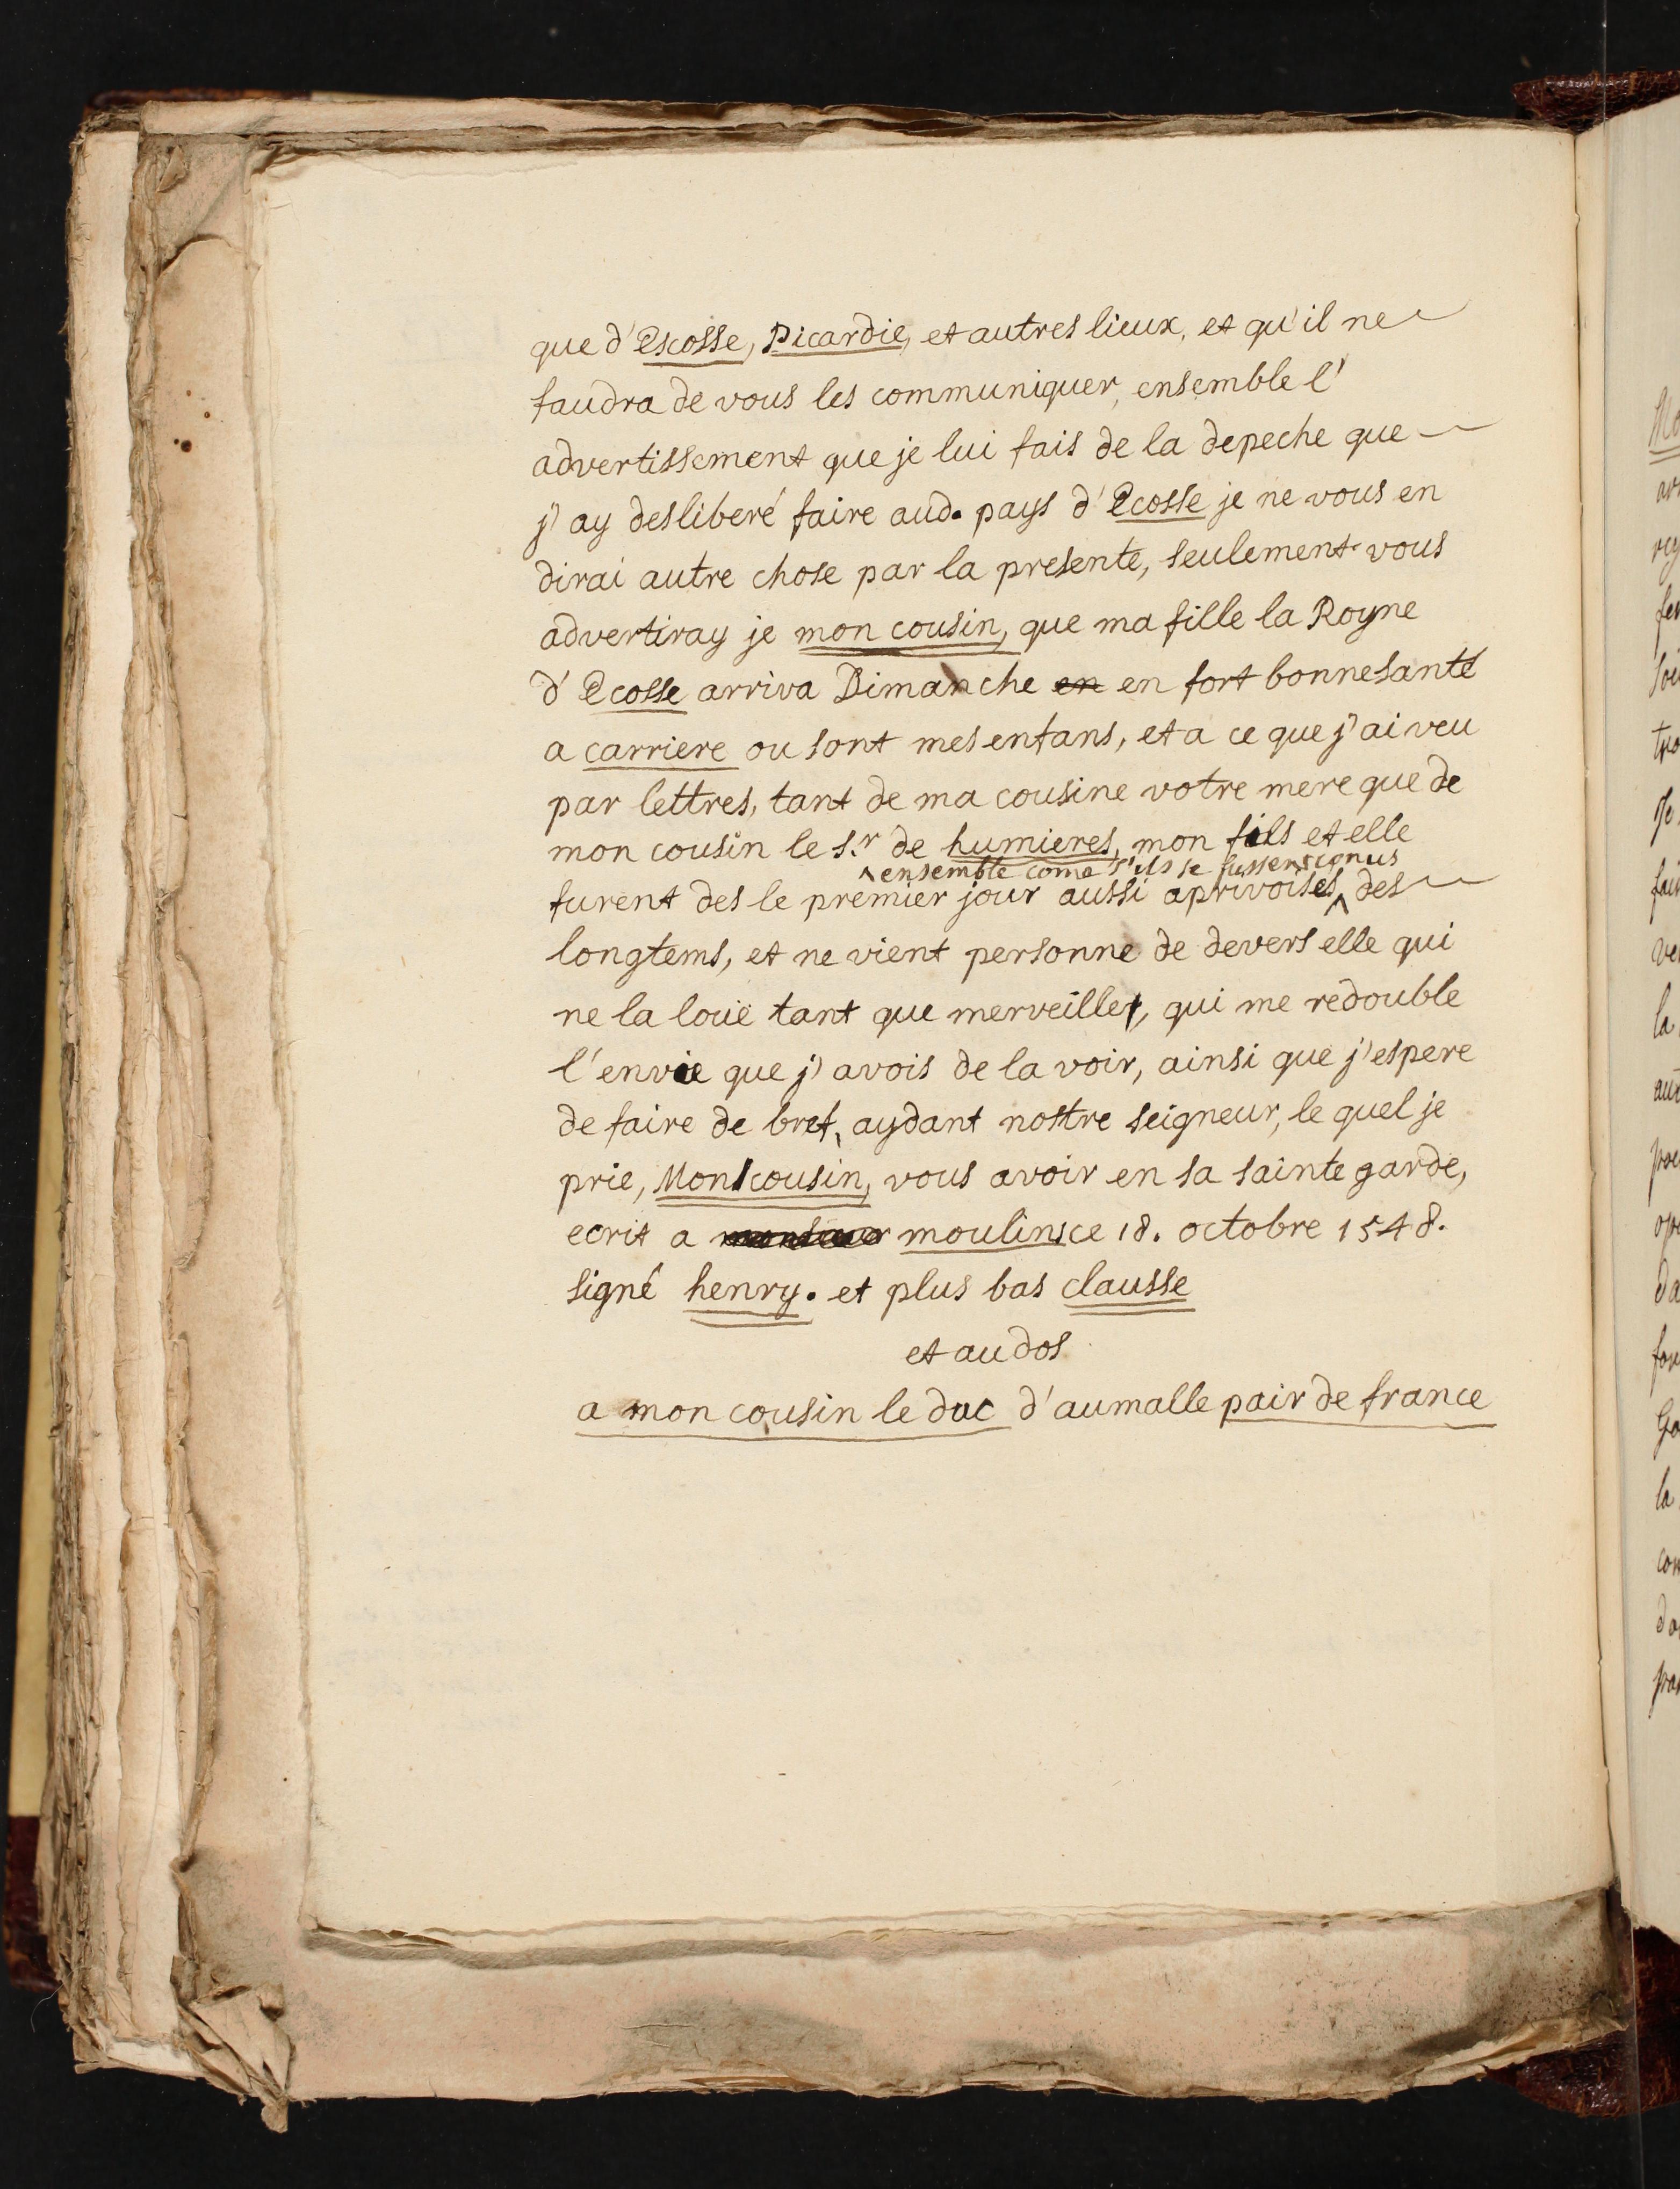 que d'Escosse, Picardie, et autres lieux, et qu'il ne
faudra de vous les communiquer, ensemble l'
advertissement que je lui fais de la depeche que
j'ay desliberé faire aud. pays d'Ecosse je ne vous en
dirai autre chose par la presente, seulement vous
advertiray je mon cousin, que ma fille la Royne
d'Ecosse arriva Dimanche en en fort bonne santé
a carriere ou sont mes enfans, et a ce que j'ai veu
par lettres, tant de ma cousine votre mere que de
mon cousin le s.r de humieres, mon fils et elle
ensemble come s'ils se fussent conus
furent des le premier jour aussi aprivoisés des
longtems, et ne vient personne de devers elle qui
ne la loüe tant que merveille, qui me redouble
l'envie que j'avois de la voir, ainsi que j'espere
de faire de bref, aydant nostre seigneur, le quel je
prie, Mon cousin, vous avoir en sa sainte garde,
ecrit a moulins ce 18. octobre 1548.
signé henry. et plus bas clausse
et au dos
a mon cousin le duc d'aumalle pair de france